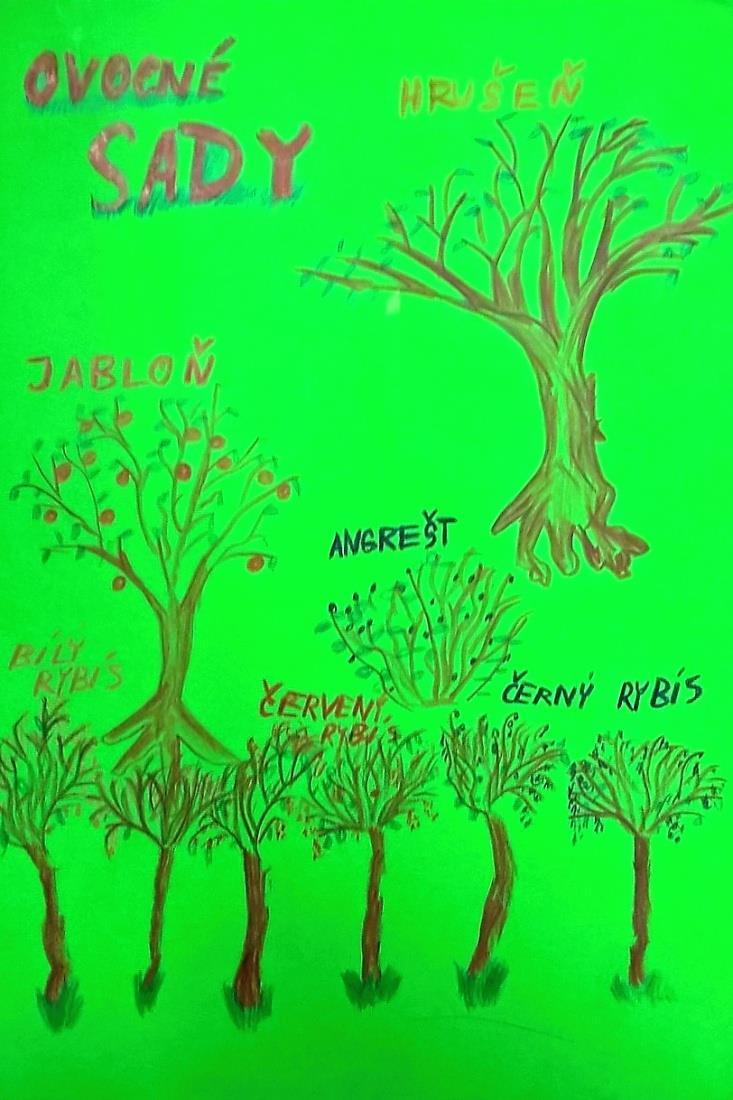 OVOCNÉ
SADY
HRUŠEŇ
JABLOŇ
ANGREŠT
BÍLÝ
RYBÍS
ČERVENÝ
RYBÍS
ČERNÝ RYBÍS